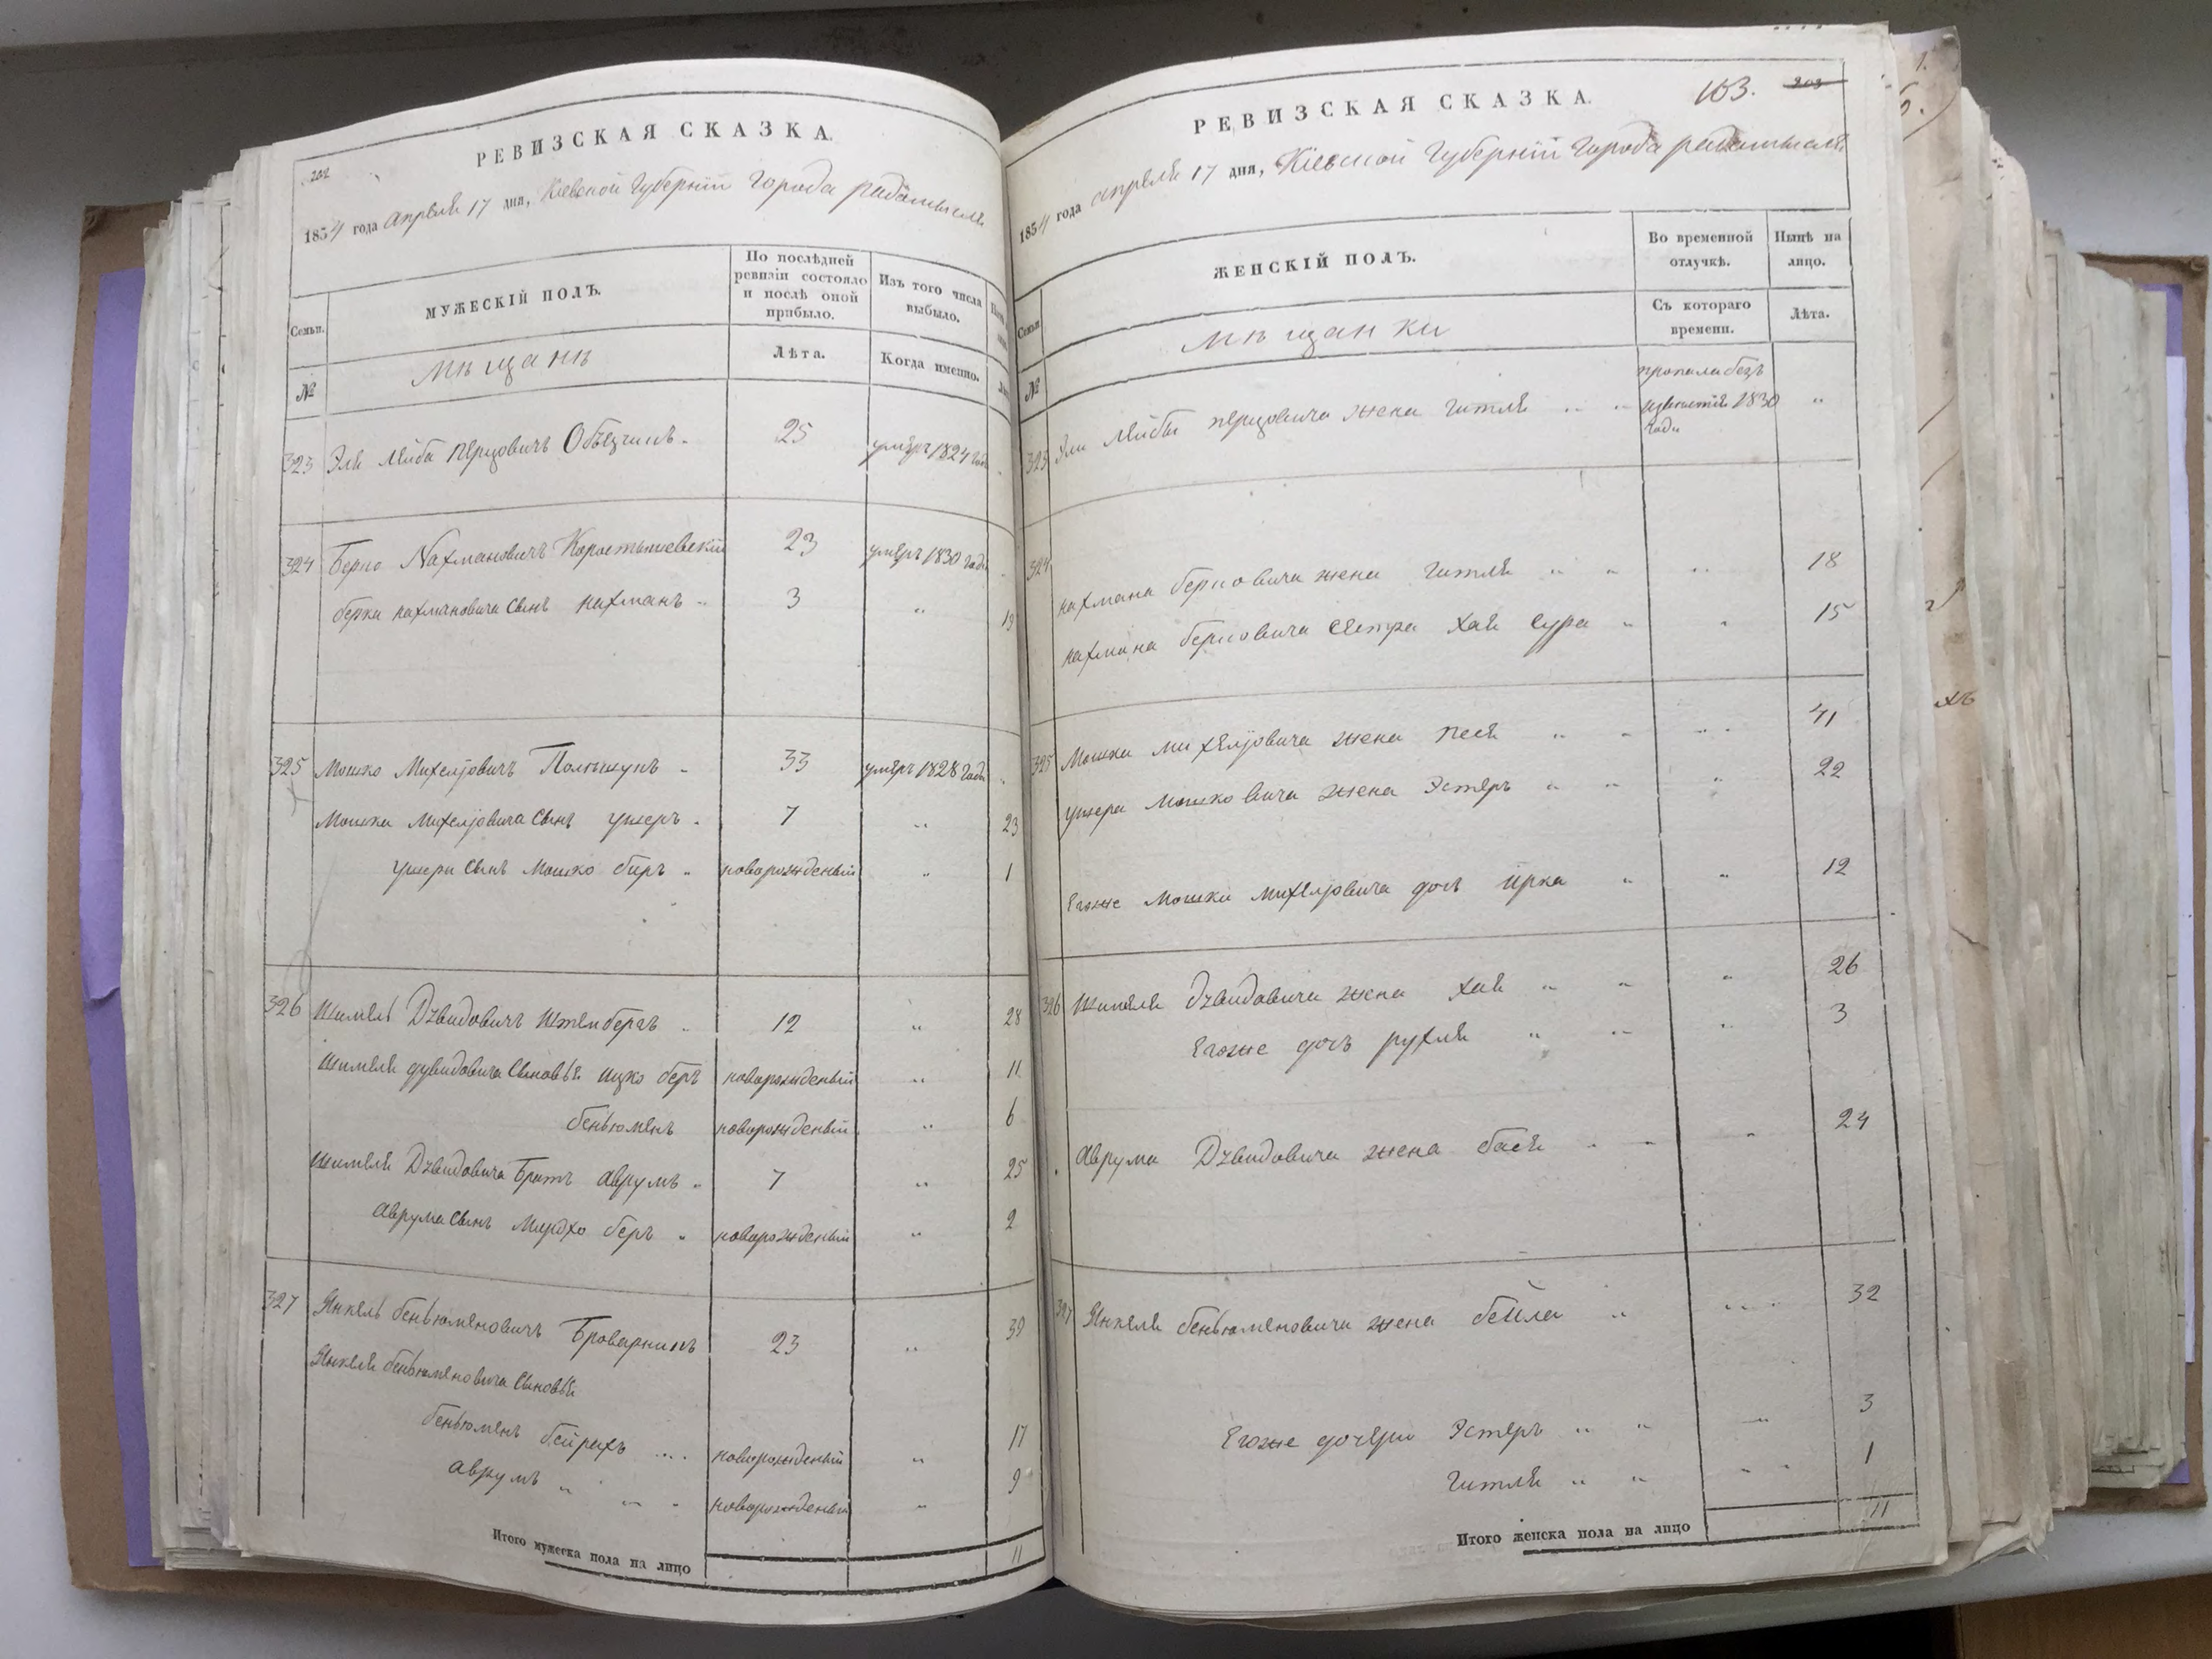 202
РЕВИЗСКАЯ СКАЗКА.
1854 года апреля 17 дня, Кіевской Губерніи города радомысля
Семьи.
МУЖЕСКІЙ ПОЛЪ.
По послѣдней ревизіи состояло и послѣ оной прибыло.
Изъ того числа выбыло.
№
мѣщанѣ
Лѣта.
Когда именно.
323 Эля Лейба Перцовичъ 25 умеръ 1824 года
324 Берко Нахмановичъ Коростышевскій 23 умеръ 1830 года
берка нахмановича сынъ нахманъ 3 " 19
325 Мошко Михелјовичъ 33 умеръ 1828 года
Мошка Михелјовича сынъ ушеръ 7 " 23
ушера сынъ мошко беръ новорожденый " 1
326 Шимель Дувидовичъ Штенбергъ 12 " 28
шимеля дувидовича сыновья ицко беръ новорожденый " 11
беньюменъ новорожденый " 6
шимеля Дувидовича Братъ аврумъ 7 " 25
аврума сынъ мордхо беръ новорожденый " 2
327 Янкель беньюменовичъ Броварникъ 23 " 39
Янкеля беньюменовича сыновья
беньюменъ бейрахъ новорожденый " 17
аврумъ " новорожденый " 9
Итого мужеска пола на лицо 11
163. 203
РЕВИЗСКАЯ СКАЗКА.
1854 года апреля 17 дня, Кіевской Губерніи города радомысля
Семьи
ЖЕНСКІЙ ПОЛЪ.
Во временной отлучкѣ.
Нынѣ на лицо.
№
мѣщанки
Съ котораго времени.
Лѣта.
323 Эли Лейбы перцовича жена гитля пропала безъ извѣстія 1830 года "
324 нахмана берковича жена гитля " " 18
нахмана берковича сестра хая сура " " 15
325 Мошка михелјовича жена песя " " 41
ушера мошковича жена Эстеръ " " 22
егоже мошки михелјовича дочь ирка " " 12
326 Шимеля дувидовича жена хая " " 26
егоже дочь рухля " " 3
аврума Дувидовича жена бася " " 24
327 Янкеля беньюменовича жена бейла " " 32
егоже дочери Эстеръ " " 3
гитля " " 1
Итого женска пола на лицо 11